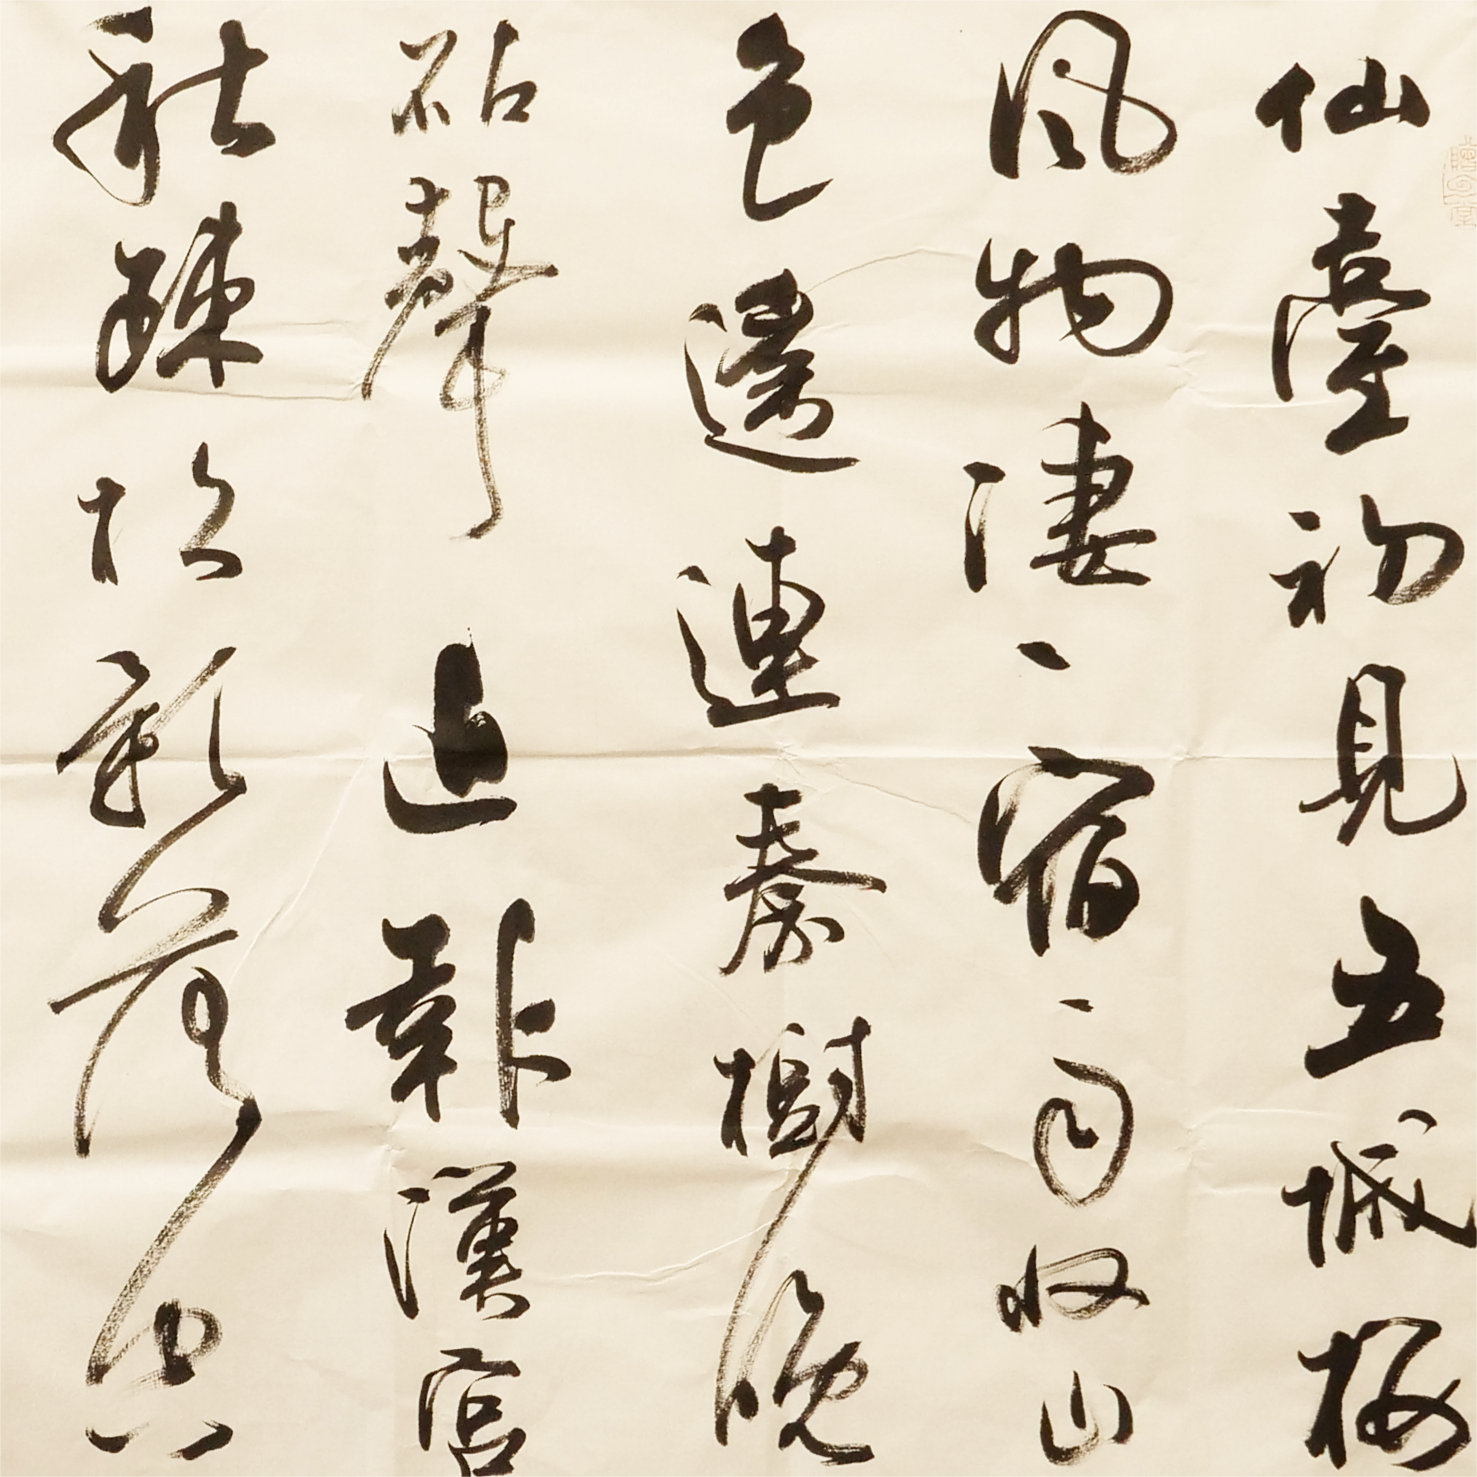 仙臺初見五城樓
風物凄々宿雨收山
色遙連秦樹晚
砧聲近報漢宮
秋疎松影落空